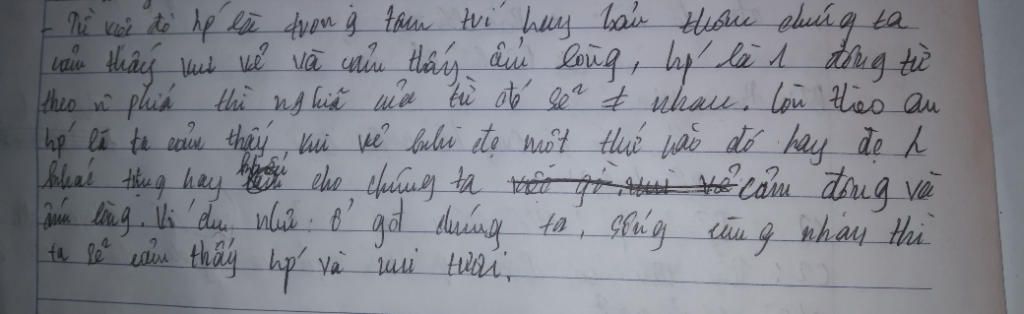 - Từ xưa đó hp' là trong tâm trí hay bản thân chúng ta
cảm thấy vui vẻ và cảm thấy ấm lòng, hp' là 1 động từ
theo n phía thì nghĩa của từ đó sẽ ≠ nhau. Còn theo em
hp' là ta cảm thấy vui vẻ khi đc một thứ nào đó hay đc
khác tặng hay khiến cho chúng ta cảm động và
ấm lòng. Ví dụ như: Ở gđ chúng ta, sống cùng nhau thì
ta sẽ cảm thấy hp' và vui tươi.